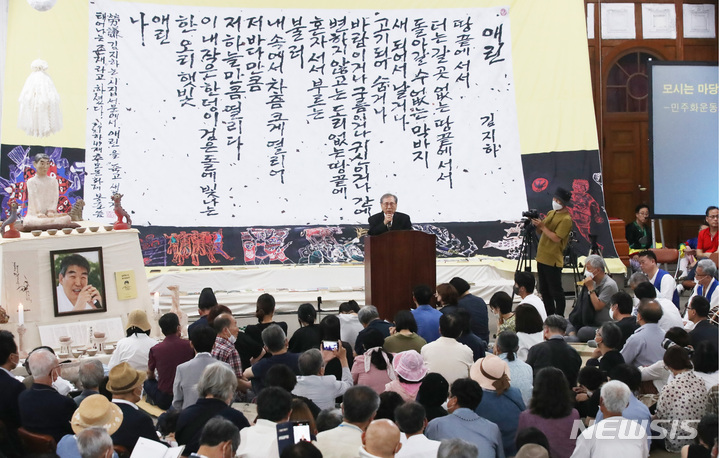 애린 김지하
땅끝에 서서
더는 갈 곳 없는 땅끝에 서서
돌아갈 수 없는 막바지
새 되어서 날거나
고기 되어 숨거나
바람이거나 구름이거나 귀신이거나 간에
변하지 않고는 도리 없는 땅끝에
혼자 서서 부르는
불러
내 속에서 차츰 크게 열리어
저 바다만큼
저 하늘만큼 열리다
이내 작은 한 덩이 검은 돌에 빛나는
한 오리 햇빛
애린
나
모시는 마당
-민주화운동
NEWSIS